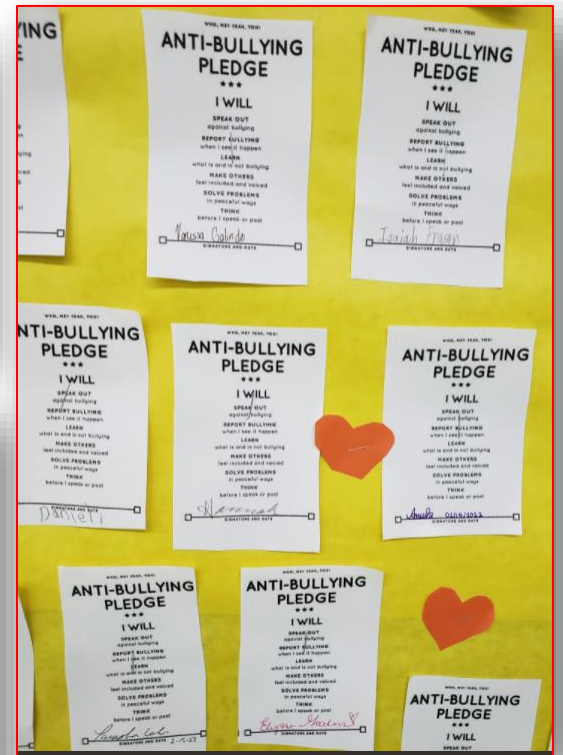 YING
WHO, ME? YEAH, YOU!
ANTI-BULLYING
PLEDGE
I WILL
SPEAK OUT
against bullying
REPORT BULLYING
when I see it happen
LEARN
what is and is not bullying
MAKE OTHERS
feel included and valued
SOLVE PROBLEMS
in peaceful ways
THINK
before I speak or post
Vanessa Galindo
SIGNATURE AND DATE
WHO, ME? YEAH, YOU!
ANTI-BULLYING
PLEDGE
I WILL
SPEAK OUT
against bullying
REPORT BULLYING
when I see it happen
LEARN
what is and is not bullying
MAKE OTHERS
feel included and valued
SOLVE PROBLEMS
in peaceful ways
THINK
before I speak or post
Isaiah
SIGNATURE AND DATE
WHO, ME? YEAH, YOU!
NTI-BULLYING
PLEDGE
I WILL
SPEAK OUT
against bullying
REPORT BULLYING
when I see it happen
LEARN
what is and is not bullying
MAKE OTHERS
feel included and valued
SOLVE PROBLEMS
in peaceful ways
THINK
before I speak or post
SIGNATURE AND DATE
Daniel
WHO, ME? YEAH, YOU!
ANTI-BULLYING
PLEDGE
I WILL
SPEAK OUT
against bullying
REPORT BULLYING
when I see it happen
LEARN
what is and is not bullying
MAKE OTHERS
feel included and valued
SOLVE PROBLEMS
in peaceful ways
THINK
before I speak or post
Hannah
SIGNATURE AND DATE
WHO, ME? YEAH, YOU!
ANTI-BULLYING
PLEDGE
I WILL
SPEAK OUT
against bullying
REPORT BULLYING
when I see it happen
LEARN
what is and is not bullying
MAKE OTHERS
feel included and valued
SOLVE PROBLEMS
in peaceful ways
THINK
before I speak or post
02/15/2022
SIGNATURE AND DATE
WHO, ME? YEAH, YOU!
ANTI-BULLYING
PLEDGE
I WILL
SPEAK OUT
against bullying
REPORT BULLYING
when I see it happen
LEARN
what is and is not bullying
MAKE OTHERS
feel included and valued
SOLVE PROBLEMS
in peaceful ways
THINK
before I speak or post
2-15-22
SIGNATURE AND DATE
WHO, ME? YEAH, YOU!
ANTI-BULLYING
PLEDGE
I WILL
SPEAK OUT
against bullying
REPORT BULLYING
when I see it happen
LEARN
what is and is not bullying
MAKE OTHERS
feel included and valued
SOLVE PROBLEMS
in peaceful ways
THINK
before I speak or post
SIGNATURE AND DATE
WHO, ME? YEAH, YOU!
ANTI-BULLYING
PLEDGE
I WILL
SPEAK OUT